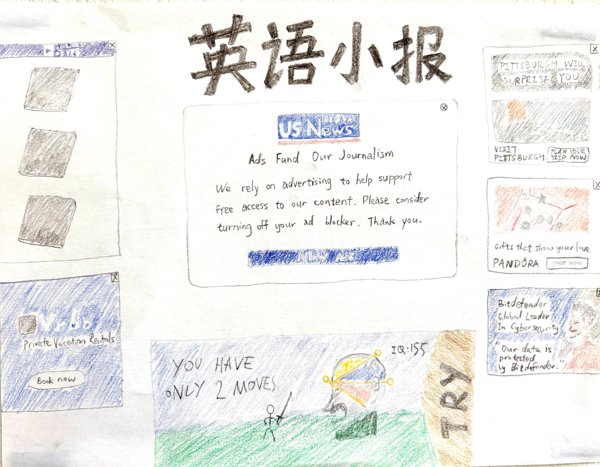 英语小报
US News
Ads Fund Our Journalism
We rely on advertising to help support
free access to our content. Please consider
turning off your ad blocker. Thank you.
Private Vacation Rentals
Book now
PITTSBURGH WILL
SURPRISE YOU
VISIT
PITTSBURGH
PLAN YOUR
TRIP NOW
Gifts that show your love
PANDÖRA
SHOP NOW
Bitdefender
Global Leader
In Cybersecurity
"Our data is
protected
by Bitdefender."
YOU HAVE
ONLY 2 MOVES
IQ-155
TRY